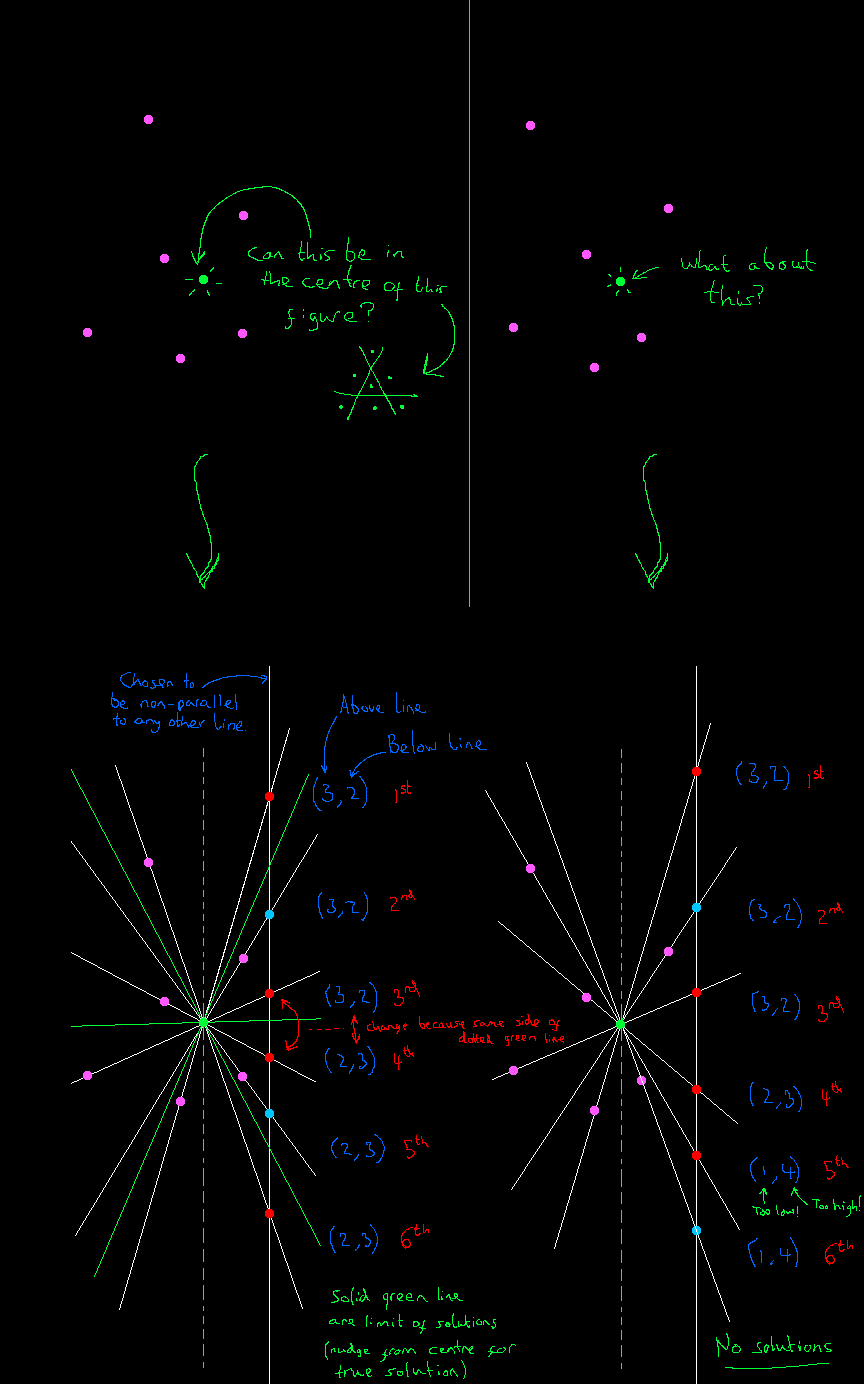 Can this be in
the centre of this
figure?
what about
this?
Chosen to
be non-parallel
to any other line.
Above line
Below line
(3,2) 1st
(3,2) 2nd
(3,2) 3rd
change because same side of
dotted green line
(2,3) 4th
(2,3) 5th
(2,3) 6th
Solid green line
are limit of solutions
(nudge from centre for
true solution)
(3,2) 1st
(3,2) 2nd
(3,2) 3rd
(2,3) 4th
(1,4) 5th
Too low!
Too high!
(1,4) 6th
No solutions